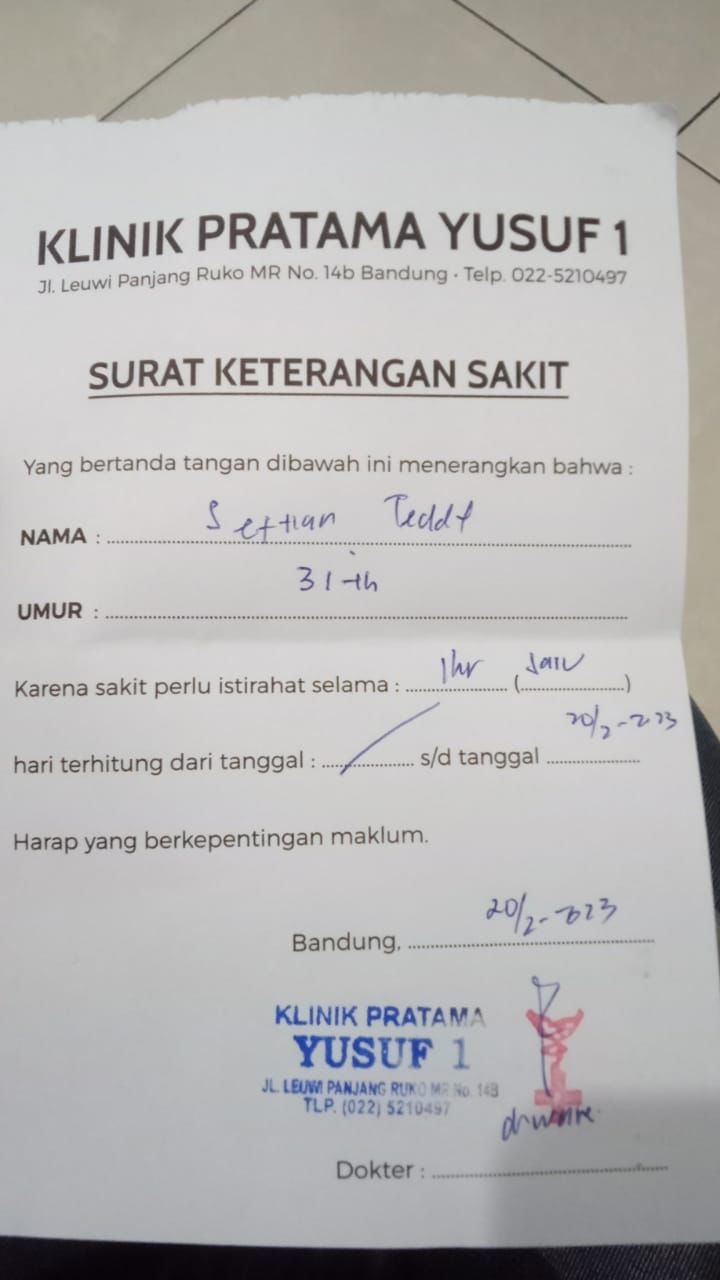 KLINIK PRATAMA YUSUF 1
Jl. Leuwi Panjang Ruko MR No. 14b Bandung • Telp. 022-5210497
SURAT KETERANGAN SAKIT
Yang bertanda tangan dibawah ini menerangkan bahwa :
NAMA : Settian Teddy
UMUR : 31 th
Karena sakit perlu istirahat selama : 1 hr (satu)
hari terhitung dari tanggal : s/d tanggal 20/2-2023
Harap yang berkepentingan maklum.
Bandung, 20/2-2023
KLINIK PRATAMA
YUSUF 1
JL. LEUWI PANJANG RUKO MR No. 14B
TLP. (022) 5210497
Dokter :